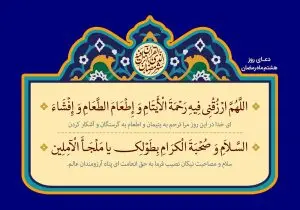 دعای روز
هشتم ماه رمضان
اللَّهُمَّ ارْزُقْنِي فِيهِ رَحْمَةَ الْأَيْتَامِ وَ إِطْعَامَ الطَّعَامِ وَ إِفْشَاءَ
ای خدا در این روز مرا ترحم به یتیمان و اطعام به گرسنگان و آشکار کردن
السَّلَامِ وَ صُحْبَةَ الْكِرَامِ بِطَوْلِكَ يَا مَلْجَأَ الْآمِلِينَ
سلام و مصاحبت نیکان نصیب فرما به حق انعامت ای پناه آرزومندان عالم.